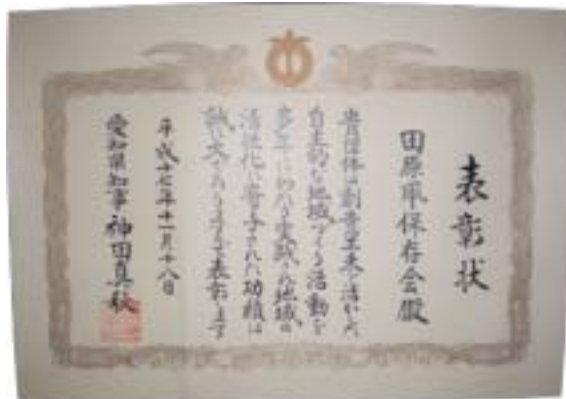 表彰状
田原凧保存会殿
貴団体は創意工夫を活かした
自主的な地域づくり活動を
多年にわたり実践され地域の
活性化に寄与された功績は
誠に大であります表彰します
平成十七年十一月十八日
愛知県知事 神田真秋